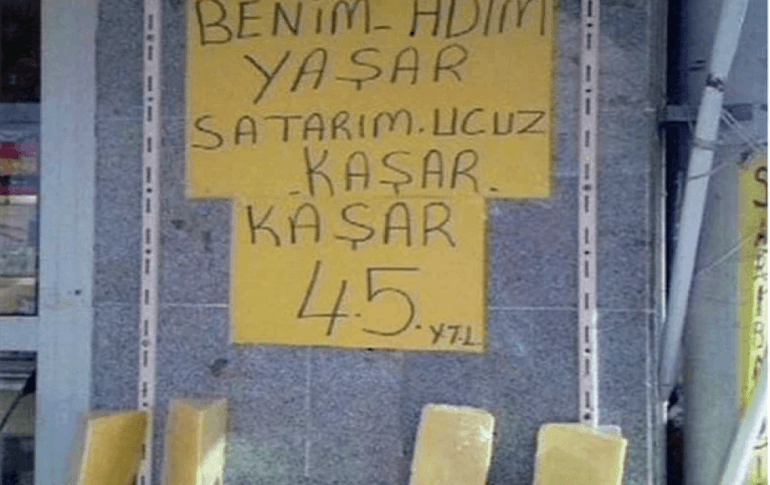 BENİM-ADIM
YAŞAR
SATARIM.UCUZ
-KAŞAR-
KAŞAR
4.5. YTL